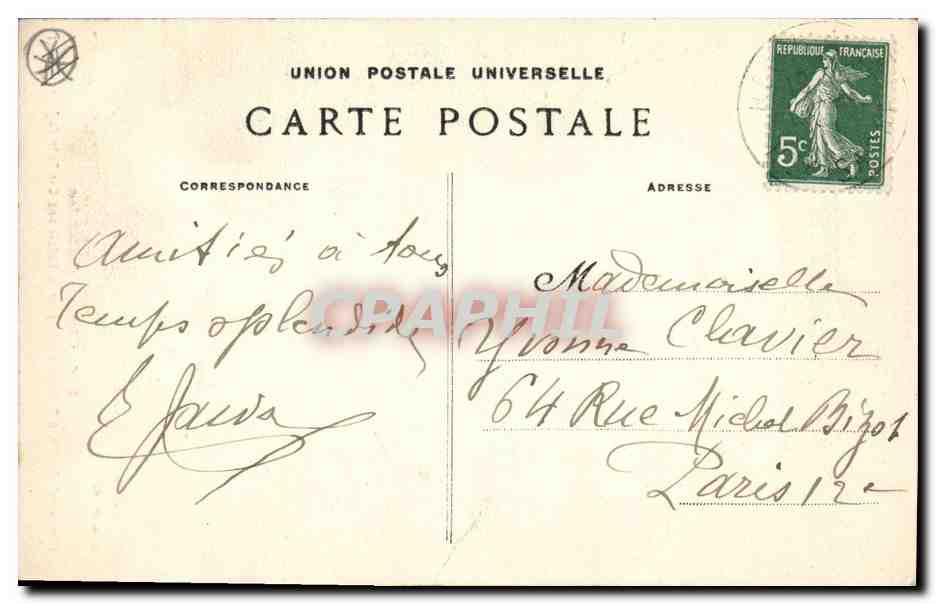 UNION POSTALE UNIVERSELLE
CARTE POSTALE
REPUBLIQUE FRANÇAISE
5c
POSTES
CORRESPONDANCE
Amitiés à tous
Temps splendide
E
ADRESSE
Mademoiselle
Yvonne Clavier
64 Rue Michel Bizot
Paris 12e
CPAPHIL